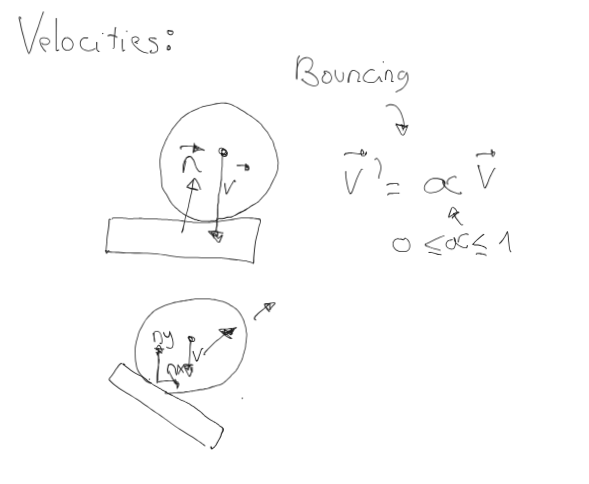 Velocities:
Bouncing
n⃗
v⃗
V⃗' = α V⃗
0 ≤ α ≤ 1
ny
nx
V